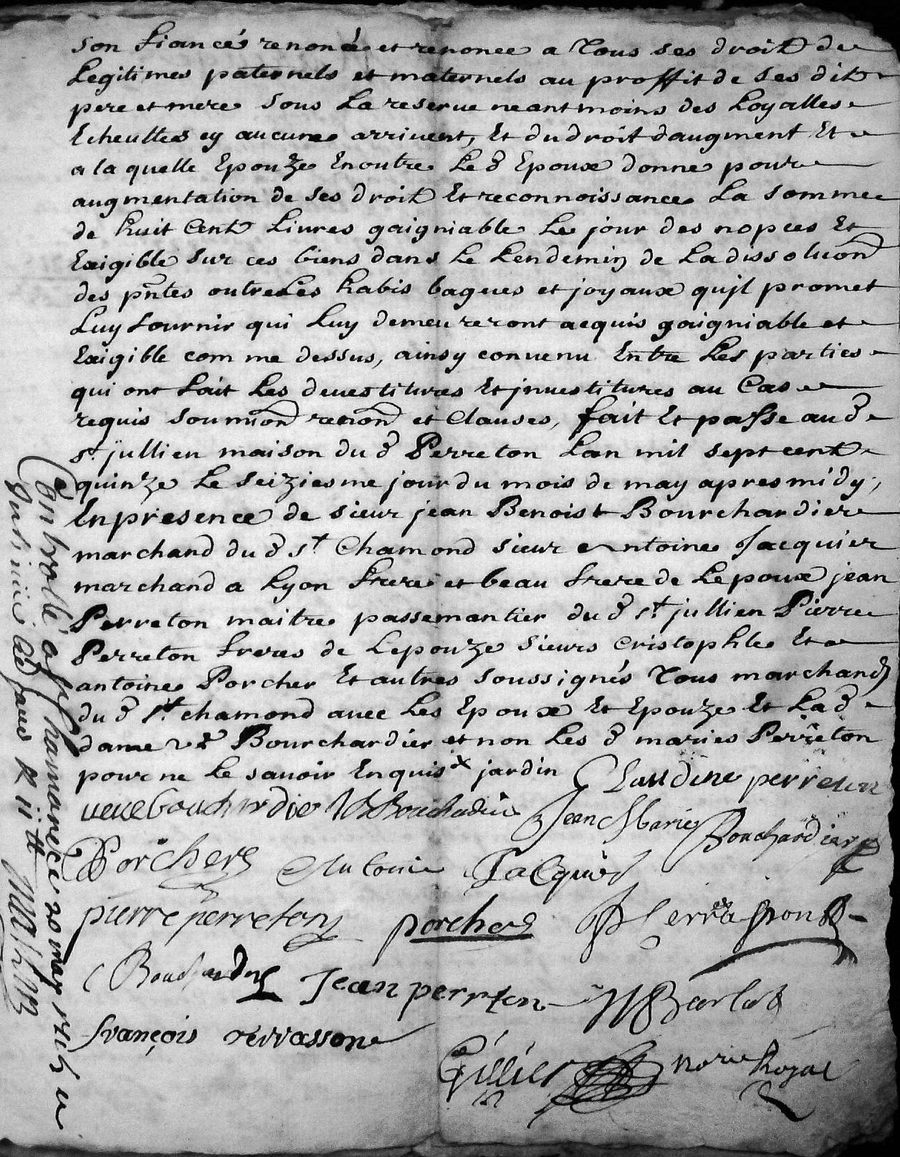 son fiancés renoncé et renonce a Tous ses droit de
Legitimes paternels et maternels au proffit de ses dit
pere et mere sous La reserve neantmoins des Loyalles
Echeuttes sy aucunes arrivent, Et du droit daugment Et
a la quelle Epouze Enoutre Le d Epoux donne pour
augmentation de ses droit Et reconnoissance La somme
de huit Cent Livres gaigniable Le jour des nopces Et
Exigible sur ces biens dans Le Lendemin de La dissoluon
des pntes outre Les habis bagues et joyaux qujl promet
Luy fournir qui Luy demeureront acquis gaigniable et
Exigible com me dessus, ainsy convenu Entre Les parties
qui ont fait Les devestitures Et jnvestitures au Cas
requis soumion renon et Clauses, fait Et passe au d
st jullien maison du d Perreton Lan mil sept cent
quinze Le seiziesme jour du mois de may apres midy,
En presence de sieur jean Benoist Bourchardier
marchand du d st Chamond sieur Antoine Jacquier
marchand a Lyon frere et beau frere de Lepoux jean
Perreton maitre passemantier du d st jullien Pierre
Perreton freres de Lepouze sieurs Cristophle Et
antoine Porcher Et autres soussignés Tous marchand
du d st chamond avec Les Epoux Et Epouze Et La d
dame ve Bourchardier et non Les d maries Perreton
pour ne Le savoir Enquis x jardin Claudine perreton
veuve bouchardie Jean Marie Bouchardier
Porcher Antoine Jacquier
pierre perreton porcher
Bouchardier Jean perreton
françois terrasson
Gillier Royal
Controllé a st Chamond ce 20 may 1715